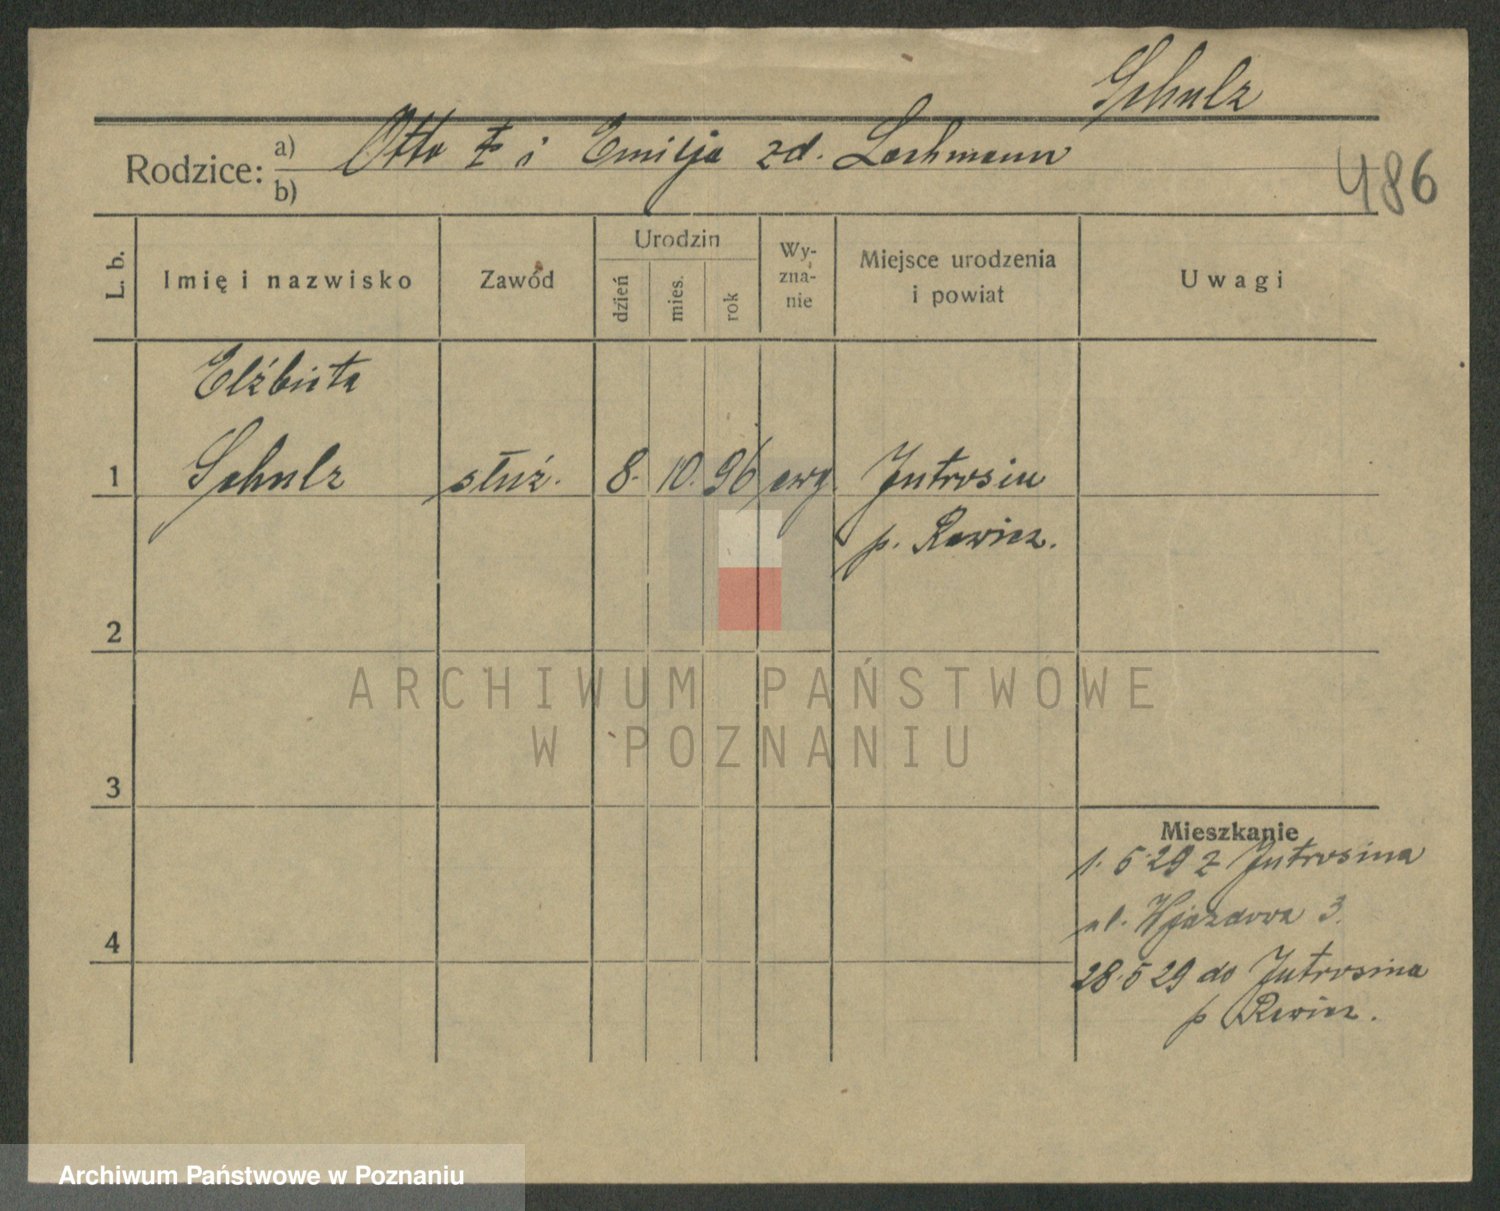 Schulz
Rodzice: a) Otto † i Emilja zd. Lachmann
b)
486
L. b.
Imię i nazwisko
Zawód
Urodzin
dzień
mies.
rok
Wy-
zna-
nie
Miejsce urodzenia
i powiat
Uwagi
Elżbieta
1 Schulz służ. 8. 10. 96 ewg Jutrosin
p. Rawicz.
2
ARCHIWUM PAŃSTWOWE
W POZNANIU
3
Mieszkanie
1. 5 29 z Jutrosina
ul. Wjazdowa 3.
4
28. 5 29 do Jutrosina
p Rawicz.
Archiwum Państwowe w Poznaniu